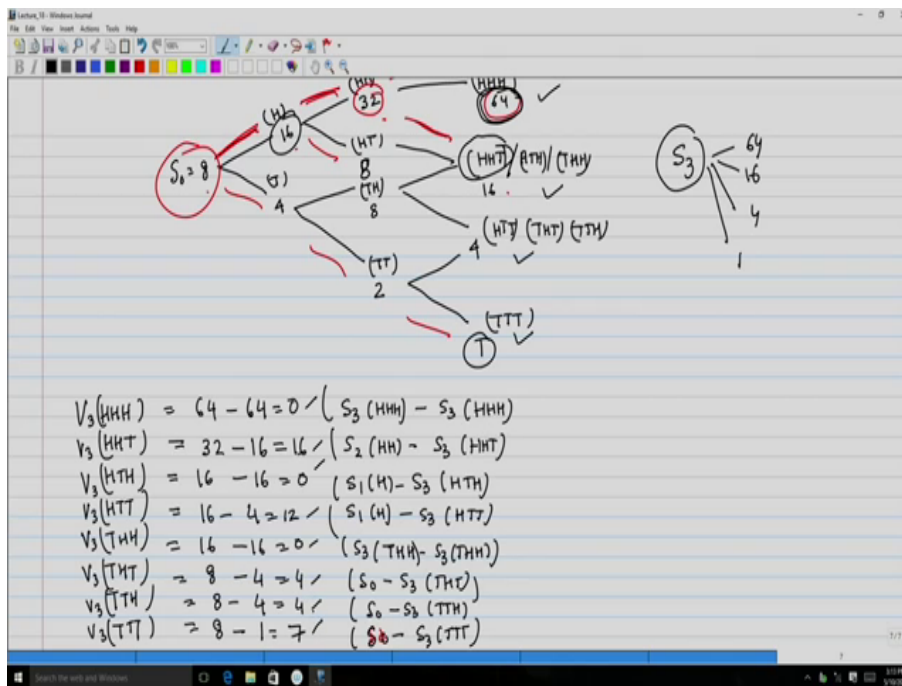 Lecture_10 - Windows Journal
File Edit View Insert Actions Tools Help
B I
(H)
32
(HHH)
64
16
(HT)
8
S₀ = 8
(T)
4
(TH)
8
(HHT)/(HTH)/(THH)
16
(HTT) (THT) (TTH)
4
(TT)
2
(TTT)
1
S₃
64
16
4
1
V₃(HHH) = 64 - 64 = 0 / (S₃(HHH) - S₃(HHH)
V₃(HHT) = 32 - 16 = 16 / (S₂(HH) - S₃(HHT)
V₃(HTH) = 16 - 16 = 0 / (S₁(H) - S₃(HTH)
V₃(HTT) = 16 - 4 = 12 / (S₁(H) - S₃(HTT)
V₃(THH) = 16 - 16 = 0 / (S₃(THH) - S₃(THH))
V₃(THT) = 8 - 4 = 4 / (S₀ - S₃(THT)
V₃(TTH) = 8 - 4 = 4 / (S₀ - S₃(TTH)
V₃(TTT) = 8 - 1 = 7 / (S₀ - S₃(TTT)
7/7
7
Search the web and Windows